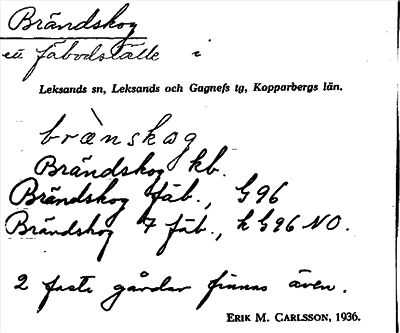 Brändskog
ett fäbodställe i
Leksands sn, Leksands och Gagnefs tg, Kopparbergs län.
brὲnskɷg
Brändskog kb.
Brändskog fäb., G96
Brändskog 7 fäb., k G96 NO.
2 fasta gårdar finnas även.
ERIK M. CARLSSON, 1936.